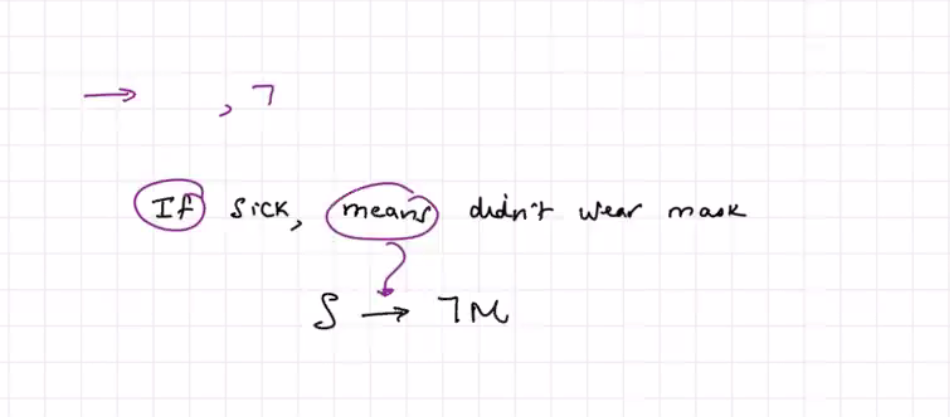 → , ¬
If sick, means didn't wear mask
S → ¬M